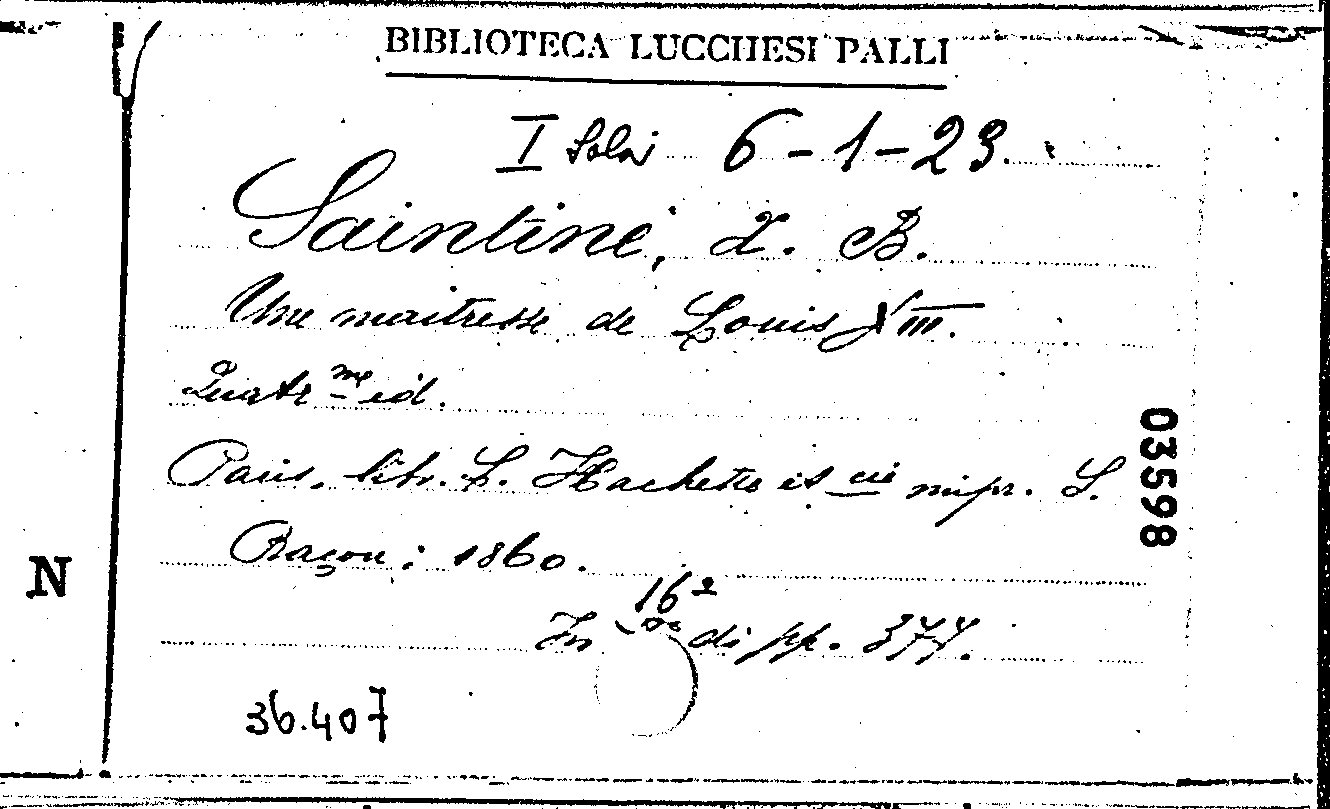 BIBLIOTECA LUCCHESI PALLI
I Sala 6-1-23.
Saintine, X. B.
Une maitresse de Louis XIII.
Quatr me ed.
Paris, libr. L. Hachette et cie impr. S.
Raçon; 1860.
In 16º di pp. 377.
03598
N
36.407